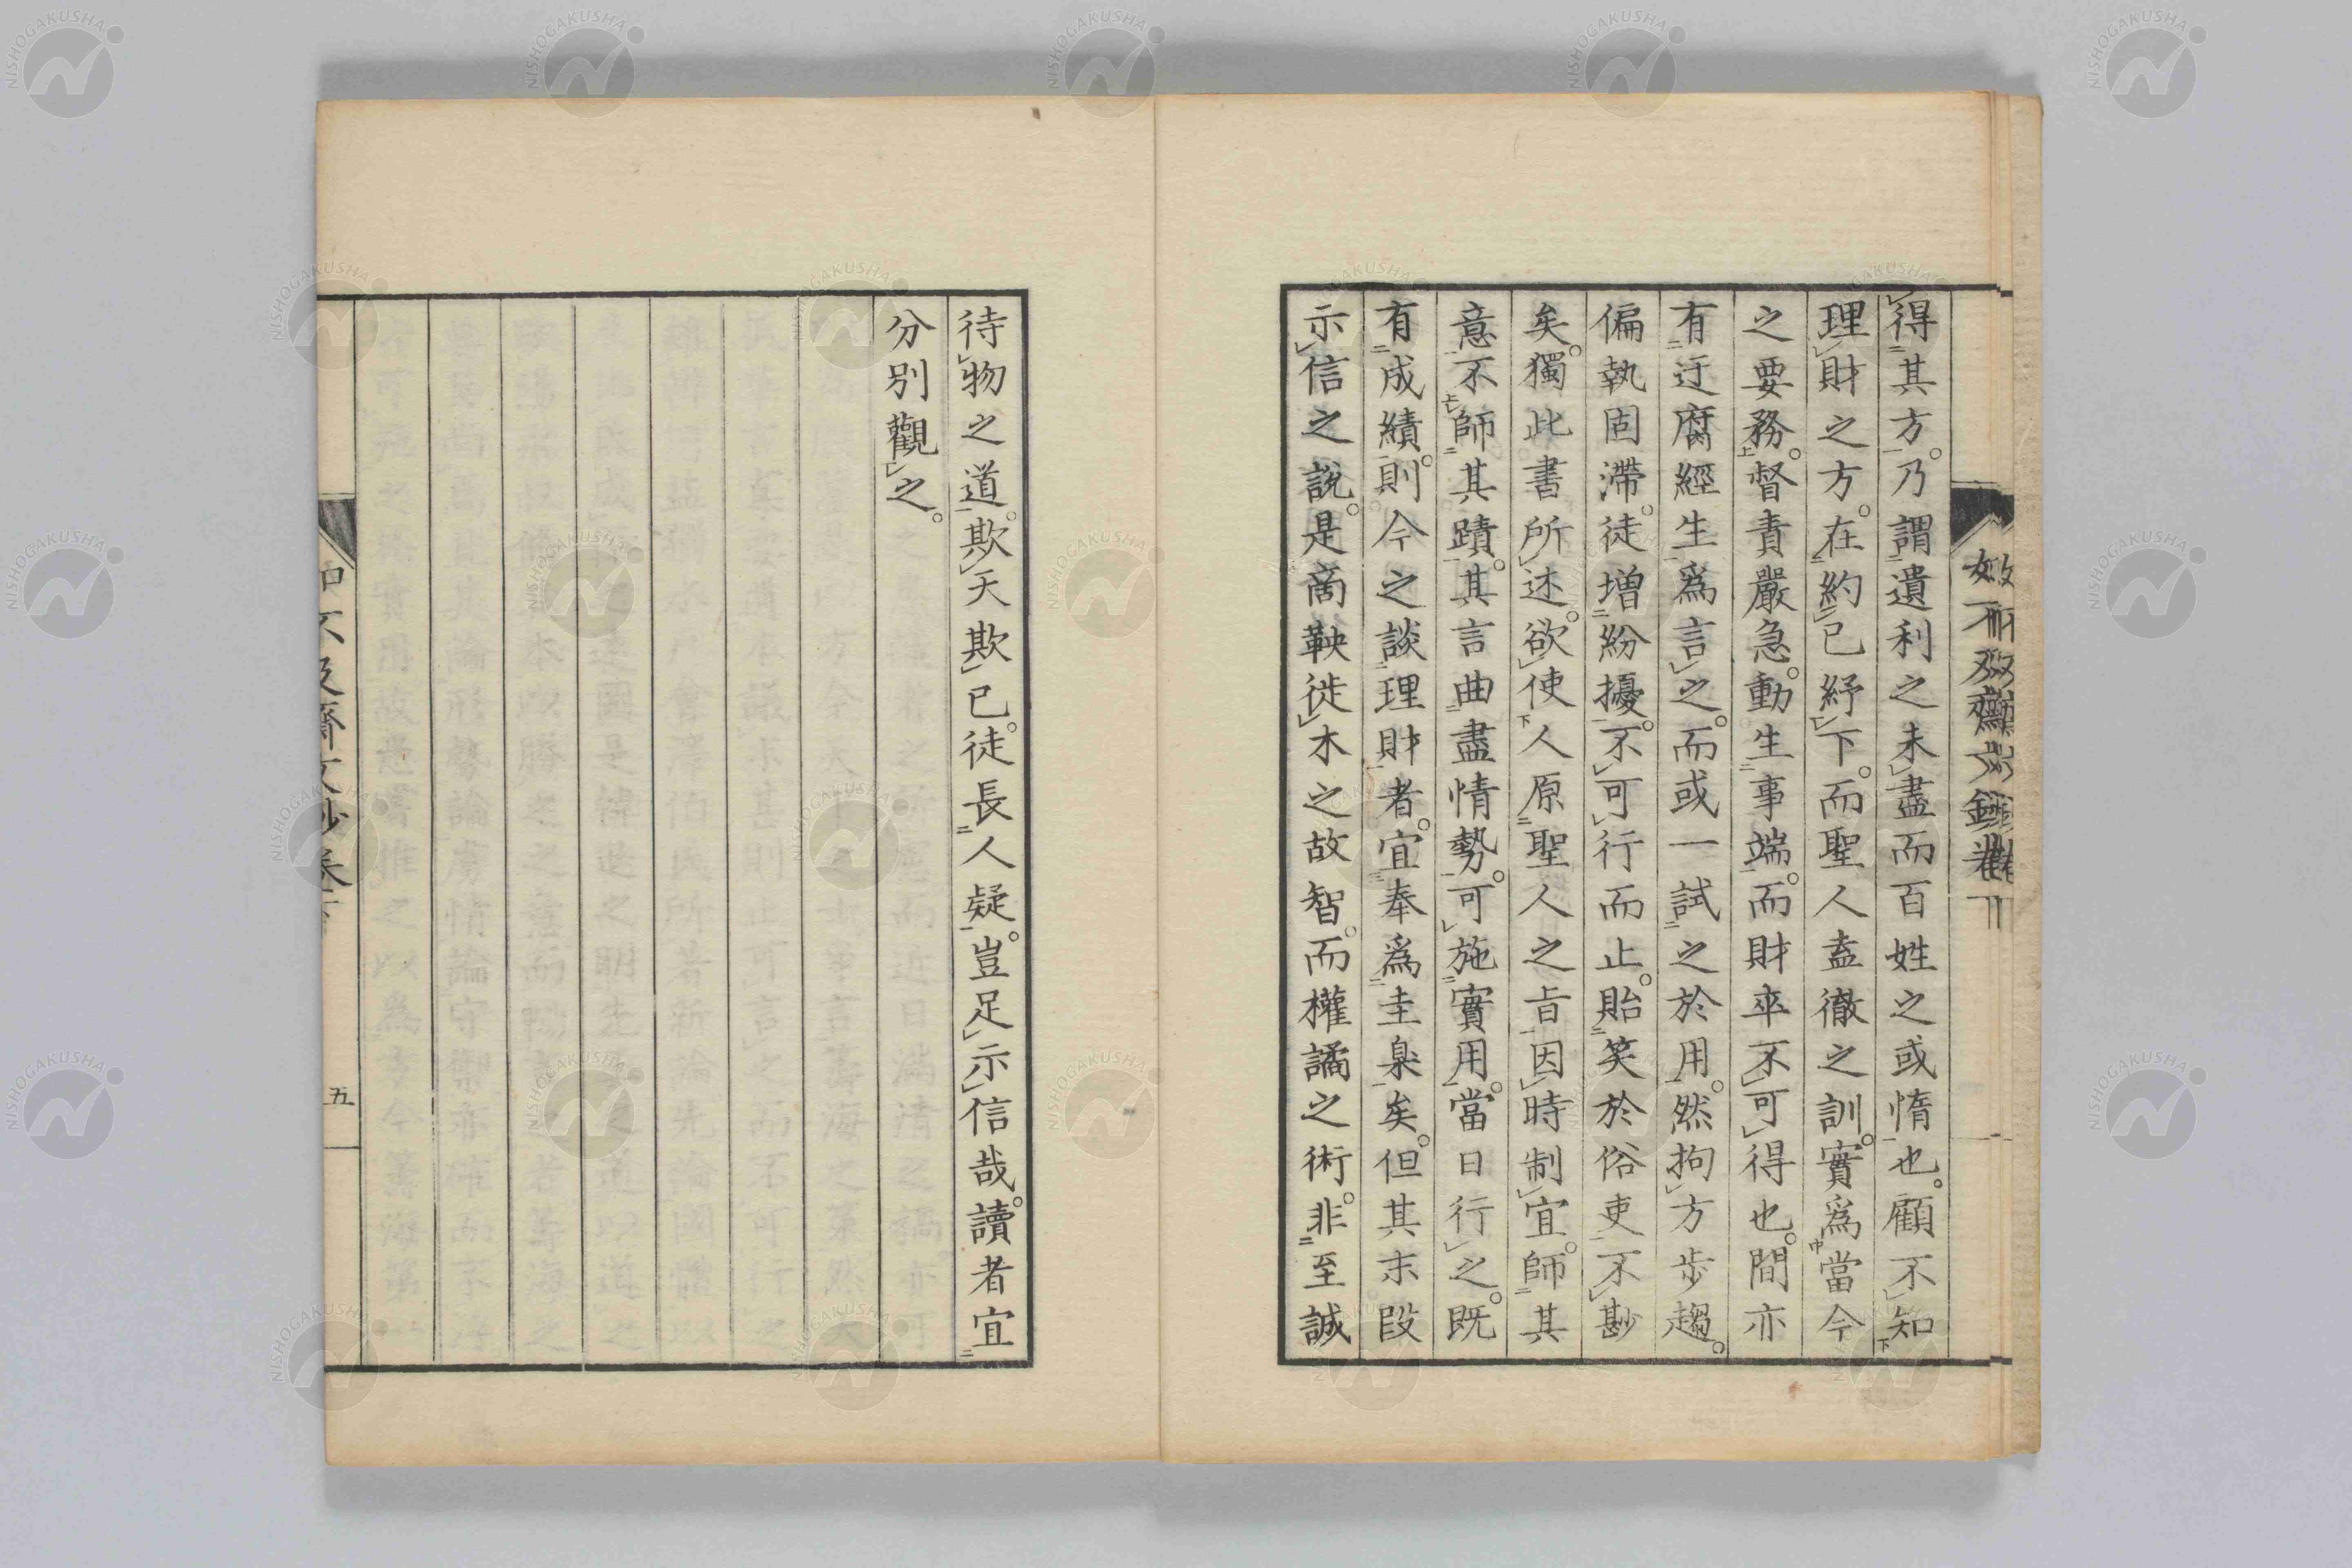 得其方。乃謂遺利之未盡而百姓之或惰也。顧不知
理財之方。在約已紓下。而聖人盍徹之訓。實爲當今
之要務。督責嚴急。動生事端。而財卒不可得也。間亦
有迂腐經生爲言之。而或一試之於用。然拘方步趨。
偏執固滯。徒增紛擾。不可行而止。貽笑於俗吏不尠
矣。獨此書所述。欲使人原聖人之旨因時制宜。師其
意不師其蹟。其言曲盡情勢。可施實用。當日行之。既
有成績。則今之談理財者。宜奉爲圭臬矣。但其末段
示信之說。是商鞅徙木之故智。而權譎之術。非至誠
待物之道。欺天欺已。徒長人疑。豈足示信哉。讀者宜
分別觀之。
五
NISHOGAKUSHA